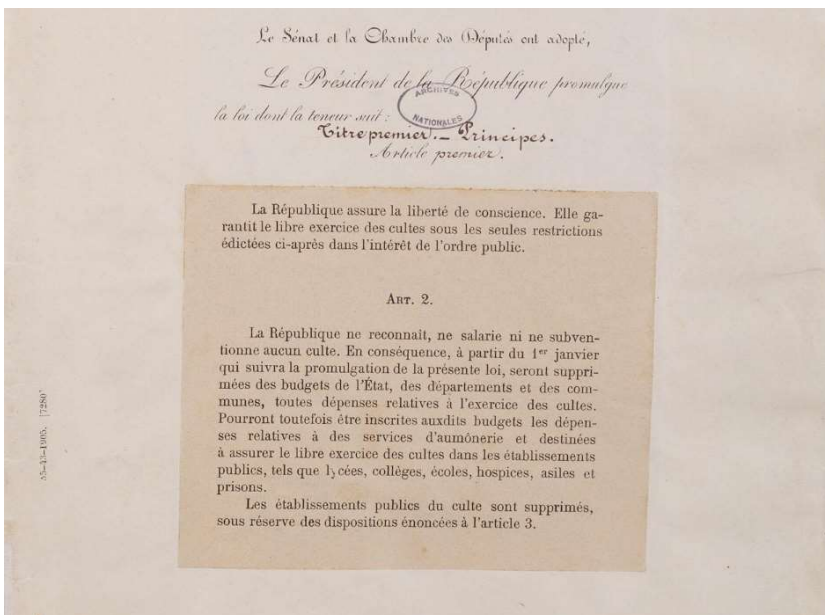 Le Sénat et la Chambre des Députés ont adopté,
Le Président de la République promulgue
ARCHIVES
NATIONALES
la loi dont la teneur suit :
Titre premier. — Principes.
Article premier.
La République assure la liberté de conscience. Elle ga-
rantit le libre exercice des cultes sous les seules restrictions
édictées ci-après dans l'intérêt de l'ordre public.
ART. 2.
La République ne reconnaît, ne salarie ni ne subven-
tionne aucun culte. En conséquence, à partir du 1er janvier
qui suivra la promulgation de la présente loi, seront suppri-
mées des budgets de l'État, des départements et des com-
munes, toutes dépenses relatives à l'exercice des cultes.
Pourront toutefois être inscrites auxdits budgets les dépen-
ses relatives à des services d'aumônerie et destinées
à assurer le libre exercice des cultes dans les établissements
publics, tels que lycées, collèges, écoles, hospices, asiles et
prisons.
Les établissements publics du culte sont supprimés,
sous réserve des dispositions énoncées à l'article 3.
1905. [7280]